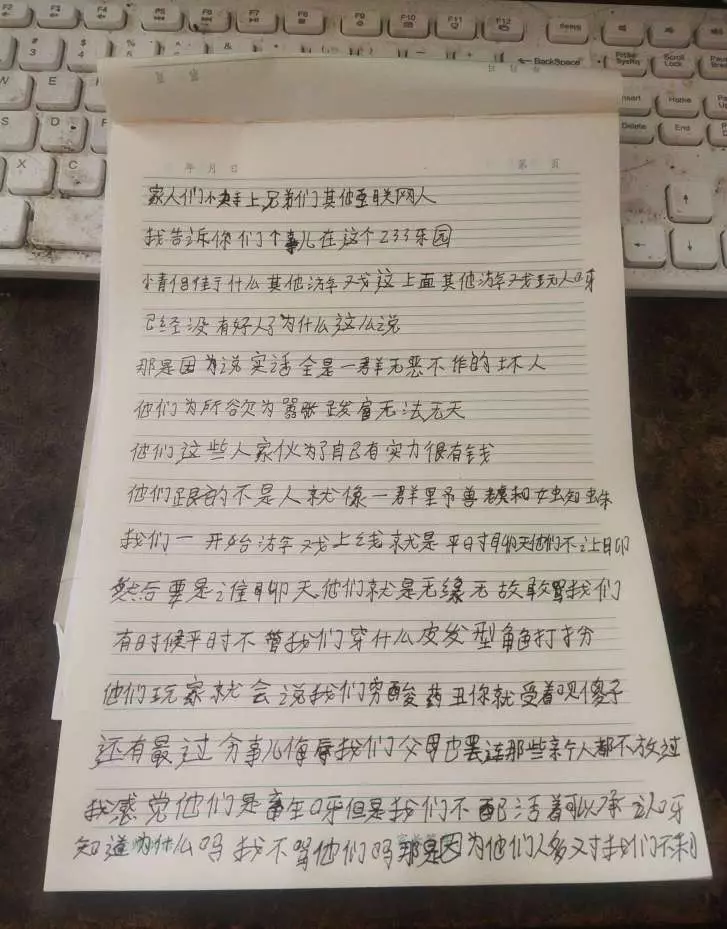 Backspace
PrtSc SysRq
Scroll Lock
Insert
Home
Delete
End
年 月 日
第 页
家人们小快手上兄弟们其他互联网人
我告诉你们个事儿在这个233乐园
小情侣佳于什么其他游字戏这上面其他游字戏玩人呀
已经没有好人了为什么这么说
那是因为说实话全是一群无恶不作的坏人
他们为所欲为嚣张 无法无天
他们这些人家伙为了自己有实力很有钱
他们 的不是人就像一群里予兽 和 蜘蛛
我们一开始游字戏上线就是平日寸聊天他们不让聊
然后要是谁聊天他们就是无缘无故敢骂我们
有时候平时不管我们穿什么皮发型角色打扮
他们玩家就会说我们穷酸 丑你就受着呗傻子
还有最过分事儿侮辱我们父母也罢连那些亲人都不放过
我感觉他们是畜生呀但是我们不配活着可以承认呀
知道为什么吗我不骂他们吗那是因为他们人多又对我们不利